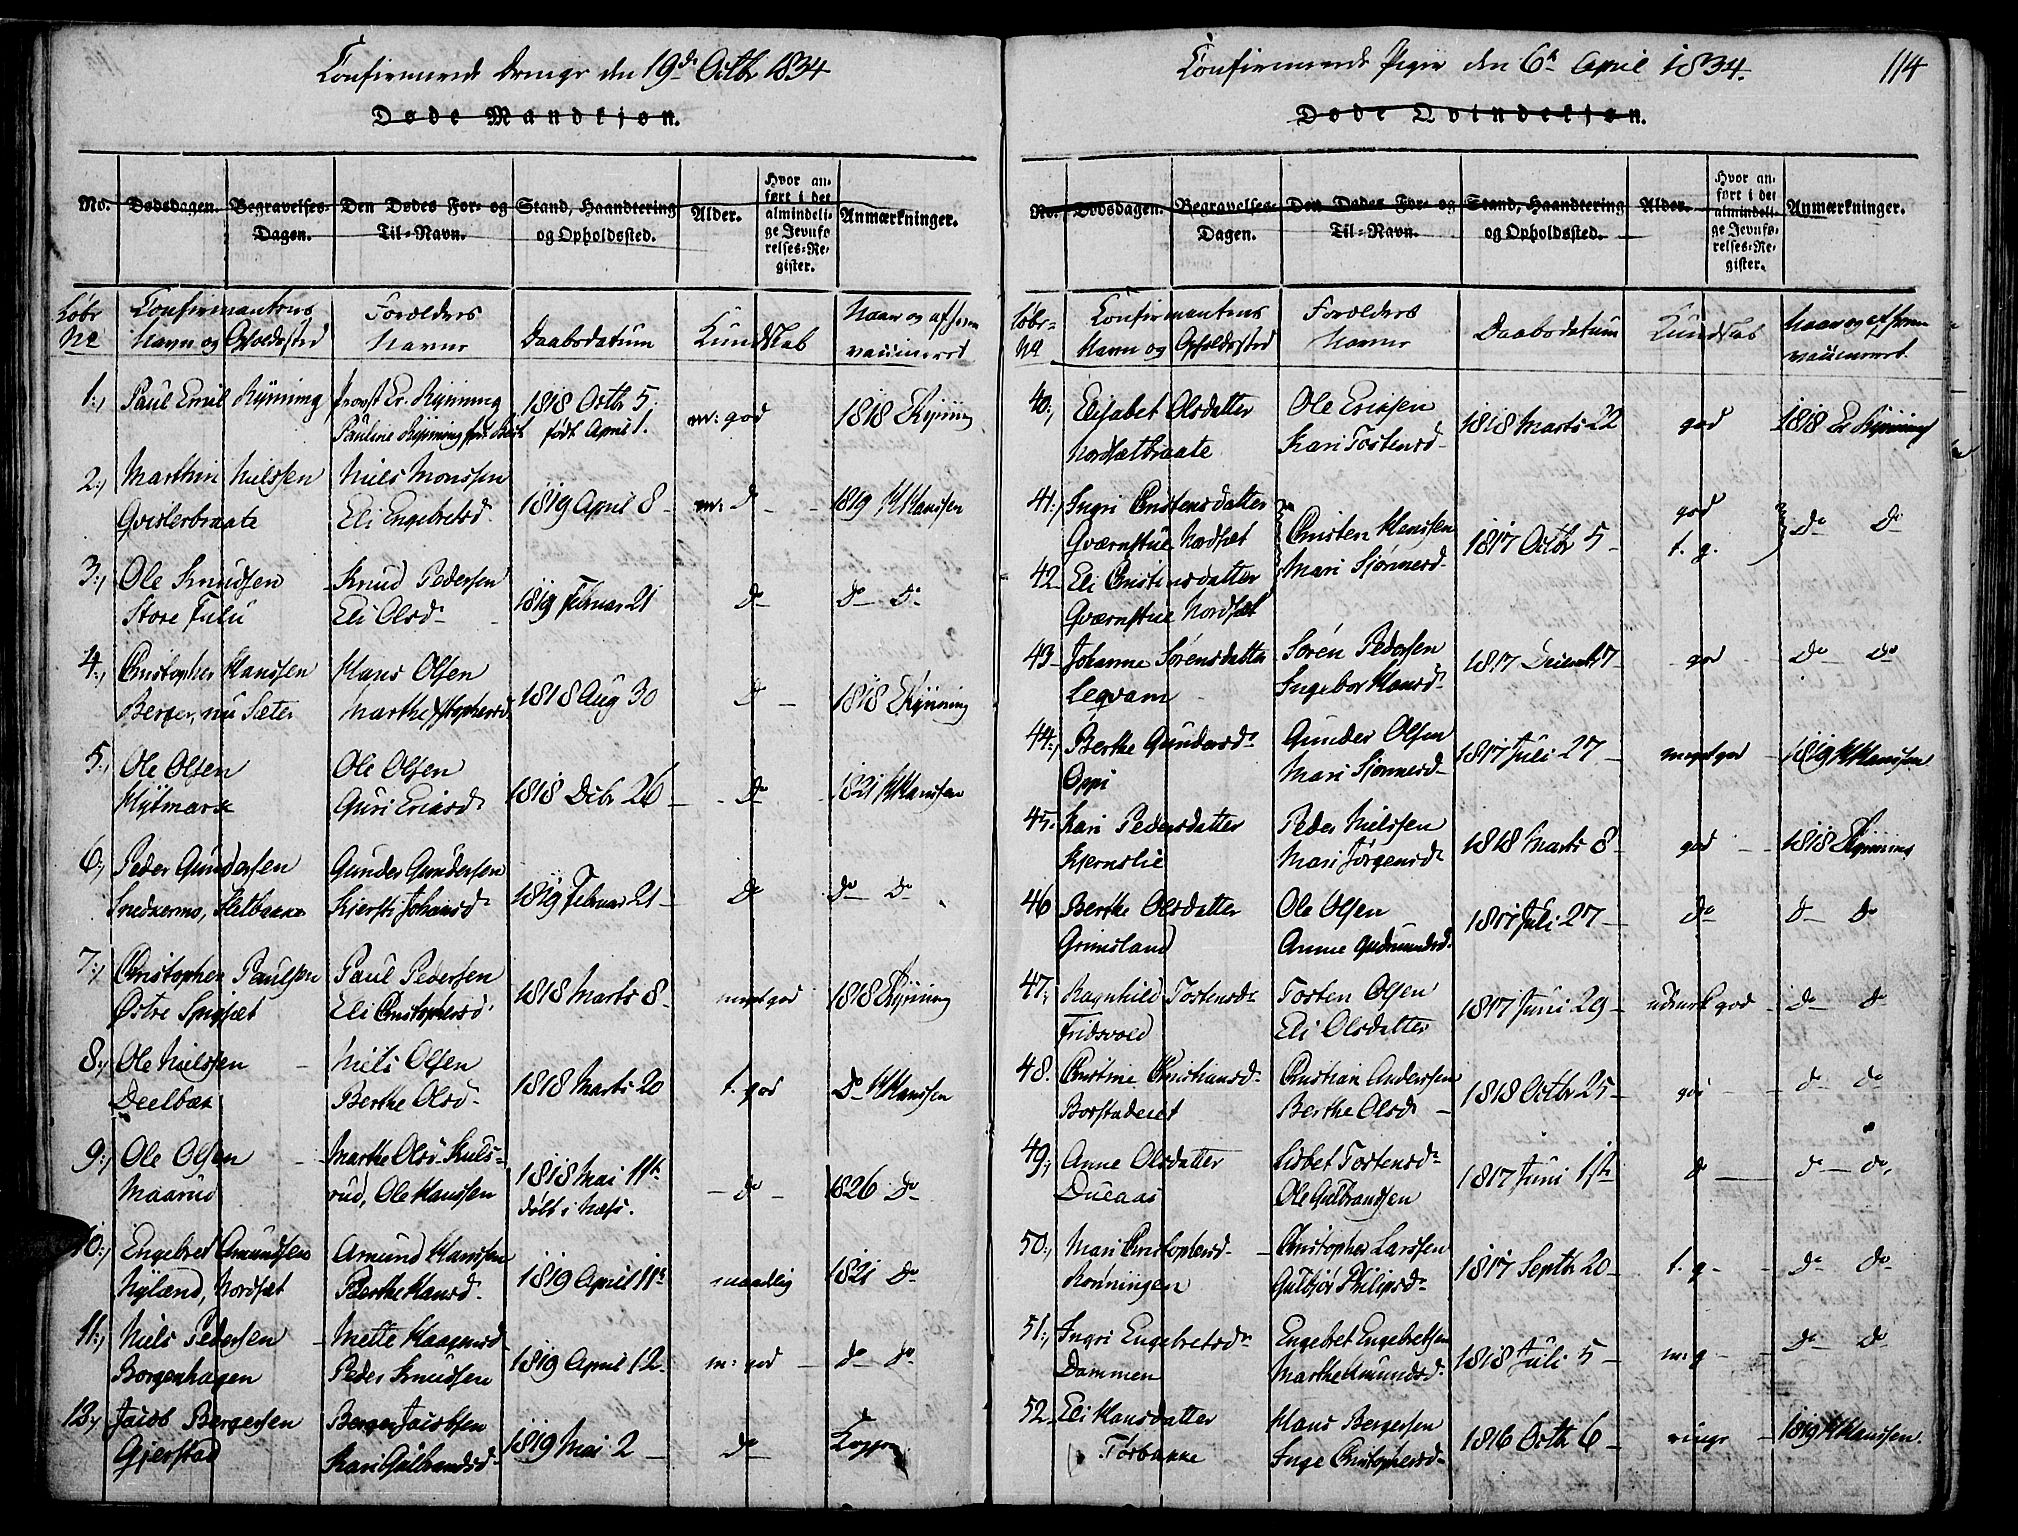 Confirmerede Drenge den 19de Octbr 1834
Døde Mandkjøn.
No. Dødsdagen. Begravelses-Dagen. Den Dødes For- og Til-Navn. Stand, Haandtering og Opholdssted. Alder. Hvor anført i det almindelige Jevnførelses-Register. Anmærkninger.
Løbe No Confirmantens Navn og Opholdssted Forældres Navne Daabsdatum Kundskab Naar og af hvem vaccineret
1:, Paul Emil Rynning Provst Er. Rynning 1818 Octbr 5. m: god 1818 Rynning
Pauline Rynning født April 1.
2:, Marthin Nielssen Niels Monssen 1819 April 8 - m: Do - 1819 H Hanssen
Qvislerbraate Eli Engebretsd.
3:, Ole Knudsen Knud Pedersen 1819 Februar 21 Do Do Do
Store Fulu Eli Olsd -
4:, Christopher Hanssen Hans Olsen 1818 Aug 30 Do 1818 Rynning
Berger, nu Sæter Marthe Xstophersd
5:, Ole Olsen Ole Olsen 1818 Debr 26 - Do 1821 H Hanssen
Hytmark Guri Ericsd
6:, Peder Gundersen Gunder Gundersen 1819 Februar 21 - Do Do Do
Snekkermo, Sletbakke Kjersti Johansd
7:, Christopher Paulsen Paul Pedersen 1818 Marts 8 - meget god 1818 Rynning
Østre Eli Christophersd
8:, Ole Nielssen Niels Olsen 1818 Marts 20 t. god Do H Hanssen
Deelbæk Berthe Olsd -
9:, Ole Olsen Marthe Olsd Kuls- 1818 Mai 11te - Do - 1826 Do
Maarud rud, Ole Hanssen døbt i Næs.
10:, Engebret Amundsen Amund Hanssen 1819 April 11te maadelig 1821 Do
Nyland, Nordsæt Berthe Hansd.
11:, Niels Pedersen Mette Haagensd 1819 April 12 - m: god - Do Do
Borgenhagen Peder Knudsen
12:, Jacob Bergersen Berger Jacobsen 1819 Mai 2 - Do Kopper
Gjerstad Kari Gulbrandsd -
Confirmerede Piger den 6te April 1834. 114
Døde Qvindekjøn.
No. Dødsdagen. Begravelses-Dagen. Den Dødes For- og Til-Navn. Stand, Haandtering og Opholdssted. Alder. Hvor anført i det almindelige Jevnførelses-Register. Anmærkninger.
Løbe- No Confirmantens Navn og Opholdssted Forældres Navne Daabsdatum Kundskab Naar og af hvem vaccineret.
40:, Elisabet Olsdatter Ole Ericsen 1818 Marts 22 god 1818 Er Rynning
Nordsætbraate Kari Tostensd -
41:, Ingri Christensdatter Christen Hanssen 1817 Octbr 5 - god Do Do
Qværnstue Nordsæt Mari Sjønnersd - t. g.
42 Eli Christensdatter
Qværnstue Nordsæt
43 - Johanne Sørensdatter Søren Pedersen 1817 Decembr 7 - god Do Do
Leqvam Ingebor Hansd -
44:, Berthe Gundersd Gunder Olsen 1817 Juli 27 - meget god 1819 H Hanssen
Oppi Mari Sjønnersd -
45. Kari Pedersdatter Peder Nielssen 1818 Marts 8 - god - 1818 Rynning
Kjernslie Mari Jørgensd
46 Berthe Olsdatter Ole Olsen 1817 Juli 27 - Do Do Do
Grimsland Anne Gudmundsd -
47:, Ragnhild Tostensd Tosten Olsen 1817 Juni 29 - udmærk god - Do Do
Fridsvold Eli Olsdatter
48. Christine Christiansd - Christian Anderssen 1818 Octbr 25 - god - Do Do
Borstaderet Berthe Olsd -
49:, Anne Olsdatter Lisbet Tostensd 1817 Juni 1ste Do - Do - Do
Ducaas Ole Gulbrandsen
50:, Mari Christophersd - Christopher Larssen 1817 Septbr 20 - t. g - Do Do
Rønningen Gulbjør Philipsd -
51:, Ingri Engebretsd Engebret Engebretsen 1818 Juli 5 - m: g - Do Do
Dammen Marthe Amundsd -
52 - Eli Hansdatter Hans Bergersen 1816 Octbr 6 - ringe - 1819 H Hanssen.
Tørbakke Inge Christophersd -